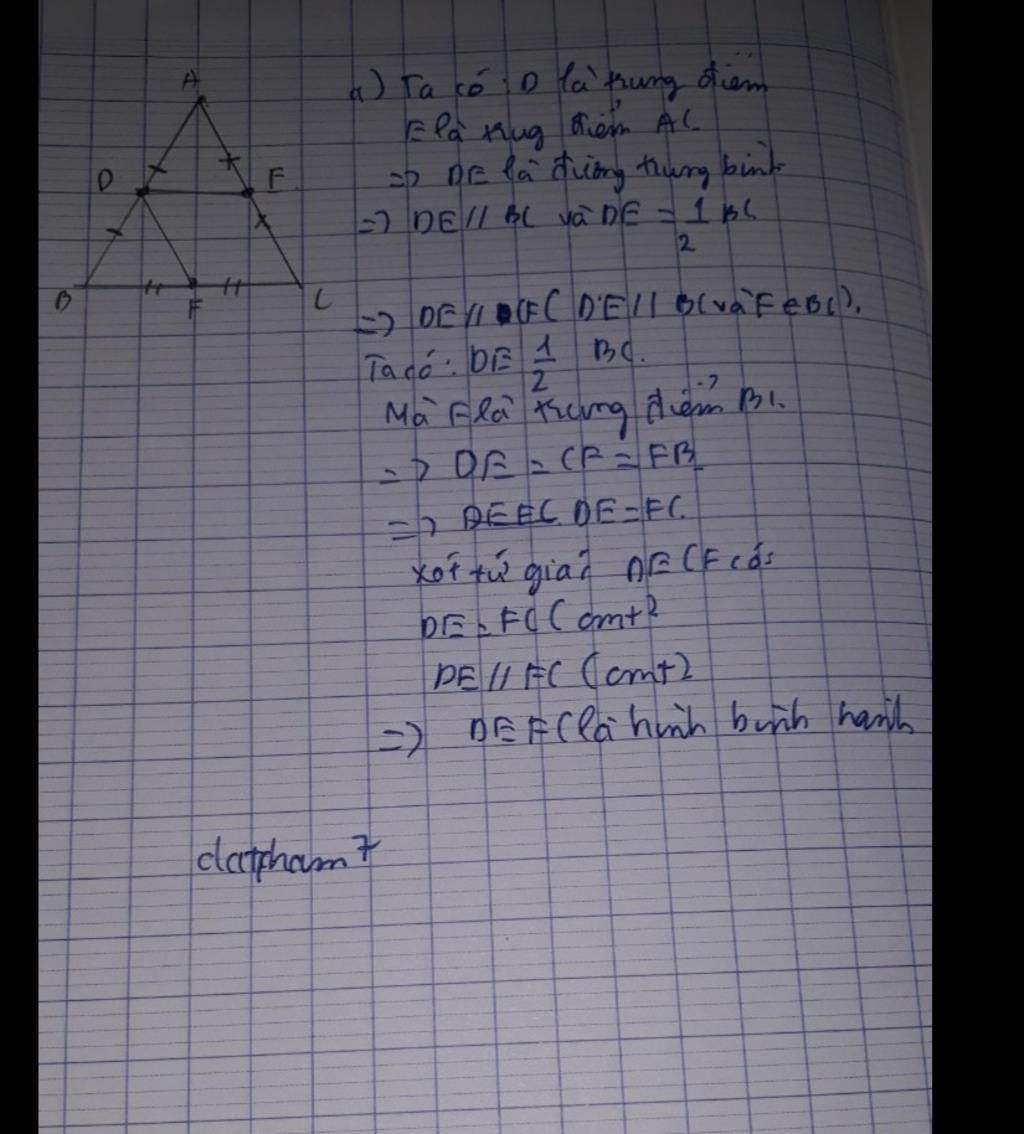 A
D
E
B
F
C
a) Ta có : D là trung điểm
E là trug điểm AC
=> DE là đường trung bình
=> DE // BC và DE = 1/2 BC
=> DE // CF ( DE // BC và F ∈ BC ).
Ta có : DE 1/2 BC.
Mà F là trung điểm BC.
=> DE = CF = FB
=> DEFC DE = FC.
Xét tứ giác DECF có:
DE = FC ( cmt )
DE // FC ( cmt )
=> DEFC là hình bình hành
datpham7